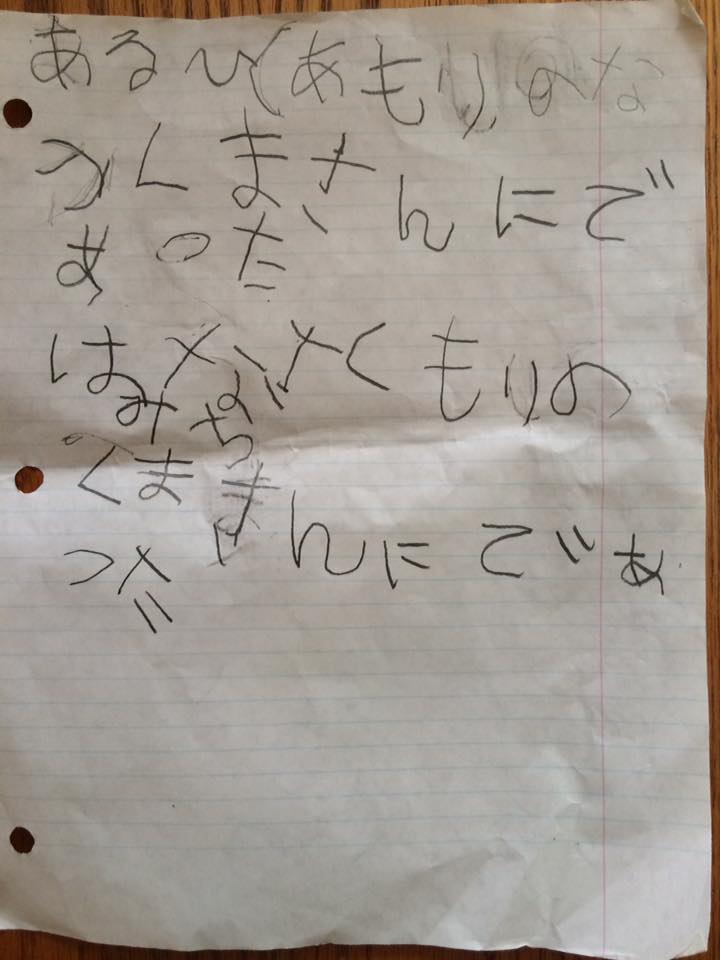 あるひ(あもりのな
かくまさんにで
あった
はなさくもりの
みち
くまさんにであ
った